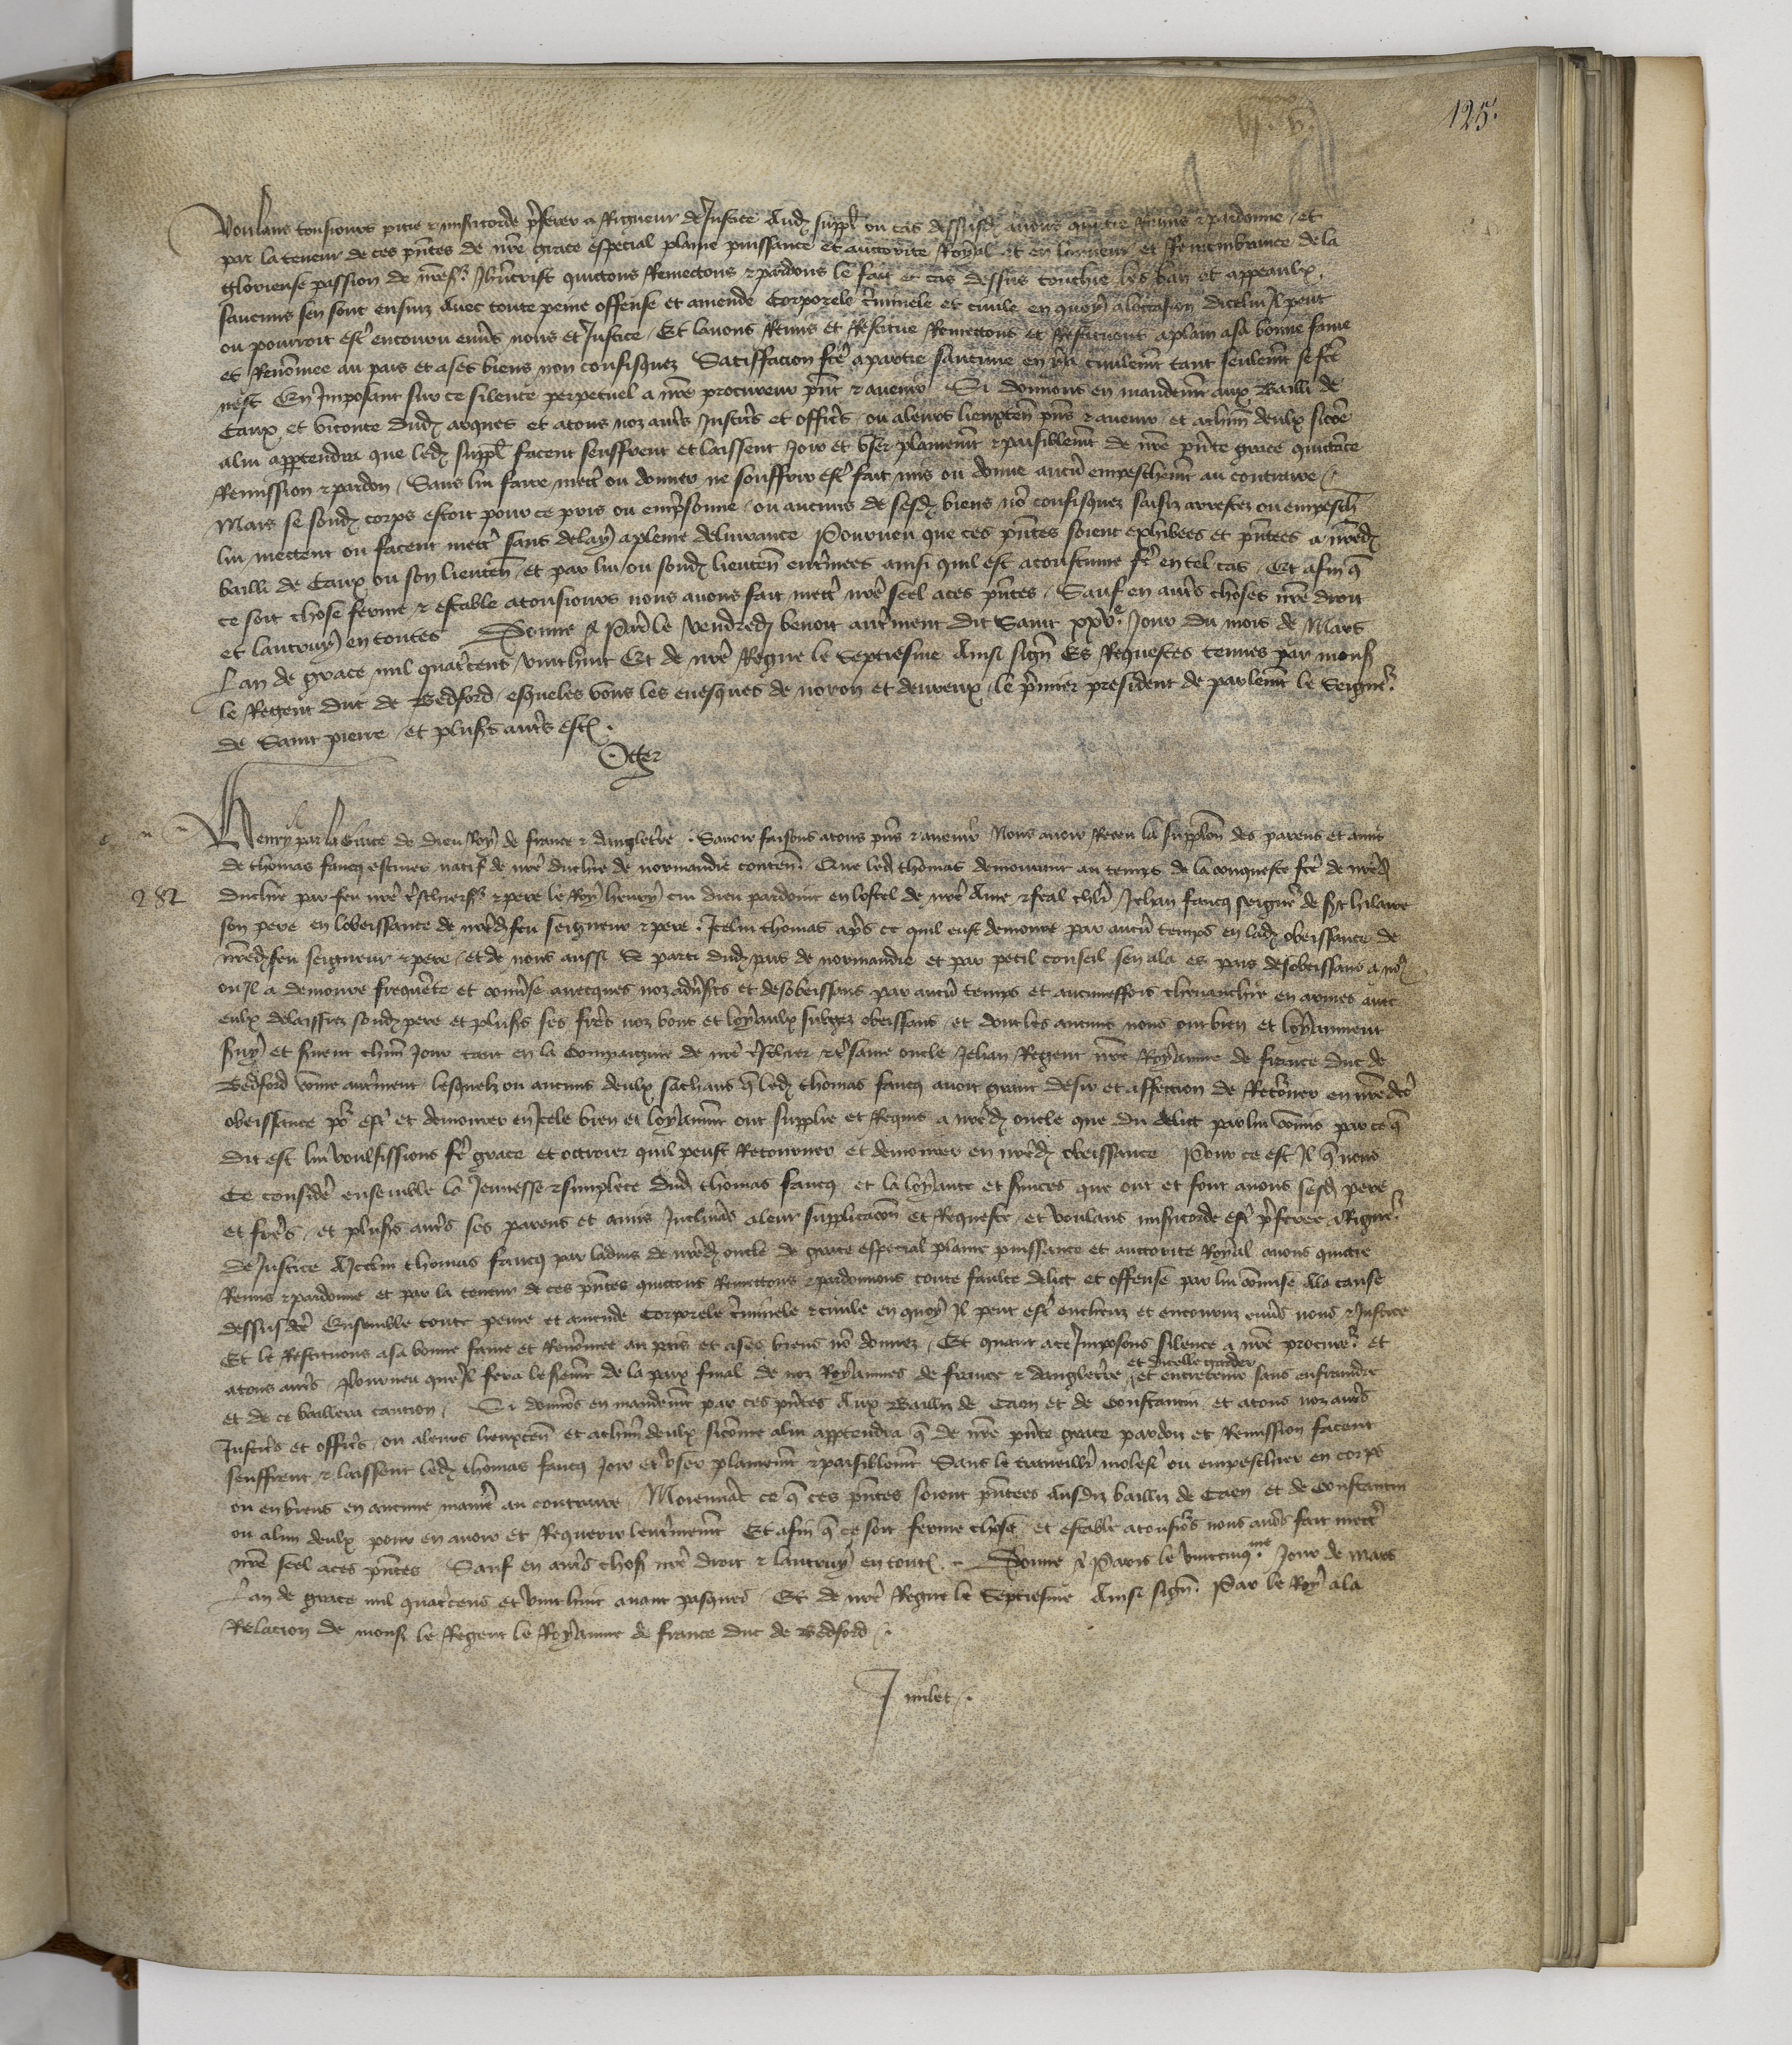 125.
Voulans tousiours pitie & misericorde p̃ferer a Rigueur de Justice Audꝫ suppl̃ ou cas dessusdꝫ auons quictie Remis & pardonne / et
par la teneur de ces p̃ntes de nr̃e grace especial plaine puissance et auctorite Royal et en lonneur et Remembrance de la
glorieuse passion de nr̃e sr̃ Jhũcrist quictons Remectons & pardons le fait et cas dessus touchie les ban et appeaulx
saucuns sen sont ensuiz Auec toute peine offense et amende Corporele c̃minele et ciuile en quoy a loccasion dicelui Il peut
ou pourroit est̃ encouru enu̾s nous et Justice Et lauons Remis et Restitue Remectons et Restituons a plain a sa bonne fame
et Renõmee au pais et a ses biens non confisquez Satisfacion fc̃e a partie saucune en y a ciuilemẽt tant seulemẽt se fc̃e
nest En Imposant sur ce silence perpetuel a nr̃e procureur p̃nt & auenir Si donnons en mandemẽt aux Bailli de
Caux et viconte dudꝫ arques et a tous noz aut̃s Justic̃s et offic̃s ou a leurs lieuxteñ p̃ns & auenir et a chũn deulx sicõe
a lui appartendra que ledꝫ suppl̃ facent seuffrent et laissent Joir et vser plainemẽt & paisiblemẽt de nr̃e p̃nte grace quictãce
Remission & pardon Sans lui faire mect̃ ou donner ne souffrir est̃ fait mis ou donne aucũ empeschemẽt au contraire
Mais se sondꝫ corps estoit pour ce pris ou emp̃sonne ou aucuns de sesdꝫ biens nõ confisquez saisiz arrestez ou empesch̃
lui mectent ou facent mect̃ sans delay a pleine deliurance Pourueu que ces p̃ntes soient exhibees et p̃ntees a nr̃edꝫ
bailli de Caux ou son lieuteñ et par lui ou sondꝫ lieuteñ ent̃inees ainsi quil est acoustume fr̃e en tel cas Et afin q̃
ce soit chose ferme & estable a tousiours nous auons fait mect̃ nr̃e seel a ces p̃ntes Sauf en aut̃s choses nr̃e droit
et lautruy en toutes Donne a Par̃ le vendredꝫ benoit aut̃ment dit Saint xxvᵉ Jour du mois de Mars
Lan de grace mil quat̃cens vinthuit Et de nr̃e Regne le Septiesme Ainsi signe Es Requestes tenues par monsr̃
le Regent duc de Bedford esqueles vous les euesques de noion et deureux le p̃mier president de parlemẽt le Seignr̃
de Saint pierre et plus̃s aut̃s estiez
Oger
Henry par la Grace de dieu Roy de france & dangleterre Sauoir faisons a tous p̃ns & auenir Nous auoir Receu la supplicõn des parens et amis
de thomas fancq escuier natif de nr̃e duchie de normandie conteñ Que ledꝫ thomas demourant au temps de la conqueste fc̃e de nr̃edꝫ
282
duchie par feu nr̃e tr̃schiersr̃ & pere le Roy henry cui dieu pardoint en lostel de nr̃e Ame & feal chl̃r Jehan fancq seignr̃ de st hilaire
son pere en lobeissance de nr̃edꝫ feu seigneur & pere Icelui thomas ap̃s ce quil eust demoure par aucũ temps en ladꝫ obeissance de
nr̃edꝫ feu seigneur & pere et de nous aussi Se parti dudꝫ pais de normandie et par petit conseil sen ala es pais desobeissans a nꝰ
ou Il a demoure frequẽte et conu̾se auecques noz adu̾s̃es et desobeissans par aucũ temps et aucuneffois cheuauchie en armes auec
eulx delaissiez sondꝫ pere et plus̃s ses fr̃es noz bons et loyaulx subgez obeissans et dont les aucuns nous ont bien et loyaument
s̃uy et s̃uent chũn Jour tant en la Compaignie de nr̃e tr̃schier & tr̃same oncle Jehan Regent nr̃e Royaume de france duc de
Bedford cõme aut̃ment lesquelz ou aucuns deulx sachans q̃ ledꝫ thomas fancq auoit grant desir et affection de Ret̃ner en nr̃edc̃e
obeissance po̾ est̃ et demourer en Icele bien et loyaumẽt ont supplie et Requis a nr̃edꝫ oncle que du delict par lui cõmis par ce q̃
dit est lui voulsissions fr̃e grace et octroier quil peust Retourner et demourer en nr̃edꝫ obeissance Pour ce est Il q̃ nous
Ce consider̃ ensemble la Jeunesse & simplece dudꝫ thomas fancq et la loyaute et s̃uices que ont et font a nous sesdꝫ pere
et fr̃es et plus̃s aut̃s ses parens et amis Inclinãs a leur supplicacõn et Requeste et voulans mis̃icorde est̃ p̃feree a Riguer̃
de Justice A Icelui thomas fancq par laduis de nr̃edꝫ oncle de grace especial plaine puissance et auctorite Royal auons quictie
Remis & pardonne et par la teneur de ces p̃ntes quictons Remectons & pardonnons toute faulte delict et offense par lui cõmise a la cause
dessusdc̃e Ensemble toute peine et amende Corporele c̃minele & ciuile en quoy Il peut est̃ encheuz et encouruz enu̾s nous & Justice
Et le Restituons a sa bonne fame et Renõmee au pais et a ses biens nõ donnez Et quant a ce Imposons silence a nr̃e procureur̃ et
a tous aut̃s Pourueu que Il fera le s̃emẽt de la paix final de noz Royaumes de france & dangleterre et dicelle garder et entretenir sans enfraindre
et de ce baillera caucion Si donnõs en mandemẽt par ces p̃ntes Aux Bailliz de Caen et de Constantin et a tous noz aut̃s
Justic̃s et offic̃s ou a leurs lieuxteñ et a chũn deulx sicõme a lui appartendra q̃ de nr̃e p̃nte grace pardon et Remission facent
seuffrent & laissent ledꝫ thomas fancq Joir et vser plainemẽt & paisiblemẽt Sans le trauaillr̃ molest̃ ou empeschier en corps
ou en biens en aucune manie̾ au contraire Moiennãt ce q̃ ces p̃ntes soient p̃ntees Ausdiz bailliz de Caen et de Constantin
ou a lun deulx pour en auoir et Requerir lent̃inemẽt Et afin q̃ ce soit ferme chose et estable a tousio̾s nous auõs fait mect̃
nr̃e seel a ces p̃ntes Sauf en aut̃s chos̃ nr̃e droit & lautruy en toutꝫ Donne a Paris le vintcinqᵐᵉ Jour de mars
Lan de grace mil quat̃cens et vinthuit auant pasques Et de nr̃e Regne le Septiesme Ainsi signe Par le Roy a la
Relacion de monsr̃ le Regent le Royaume de france duc de Bedford
Imilet